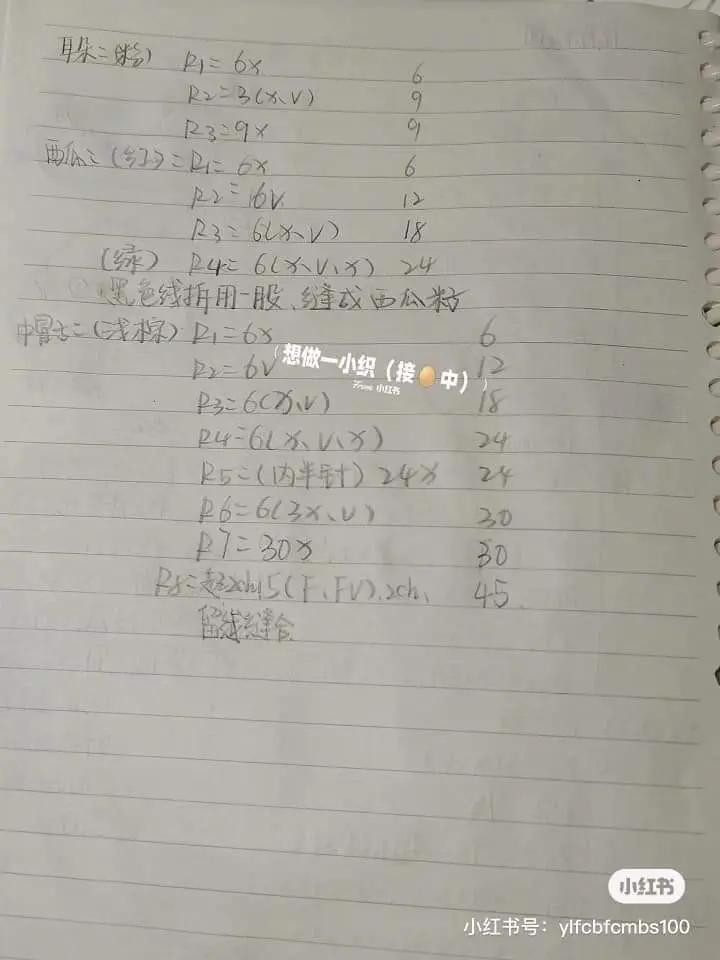 耳朵=(粉) R1=6x 6
R2=3(x、v) 9
R3=9x 9
西瓜=(红)=R1=6x 6
R2=6v 12
R3=6(x、v) 18
(绿) R4=6(x、v、x) 24
黑色线拆用一股、缝成西瓜籽
帽子=(浅棕) R1=6x 6
R2=6v 12
想做一小织(接🥚中)
From 小红书
R3=6(x、v) 18
R4=6(x、v、x) 24
R5=(内半针) 24x 24
R6=6(3x、v) 30
R7=30x 30
R8=起2ch,15(F、FV).2ch、 45
留线缝合
小红书
小红书号：ylfcbfcmbs100